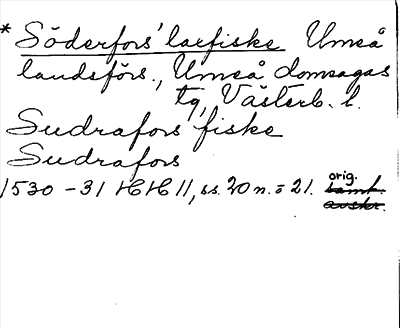 * Söderfors' laxfiske Umeå
landsförs., Umeå domsagas
tg, Västerb. l.
Sudrafors fiske
Sudrafors
1530-31 HH 11, ss. 20 n. o 21. orig.
samt.
avskr.